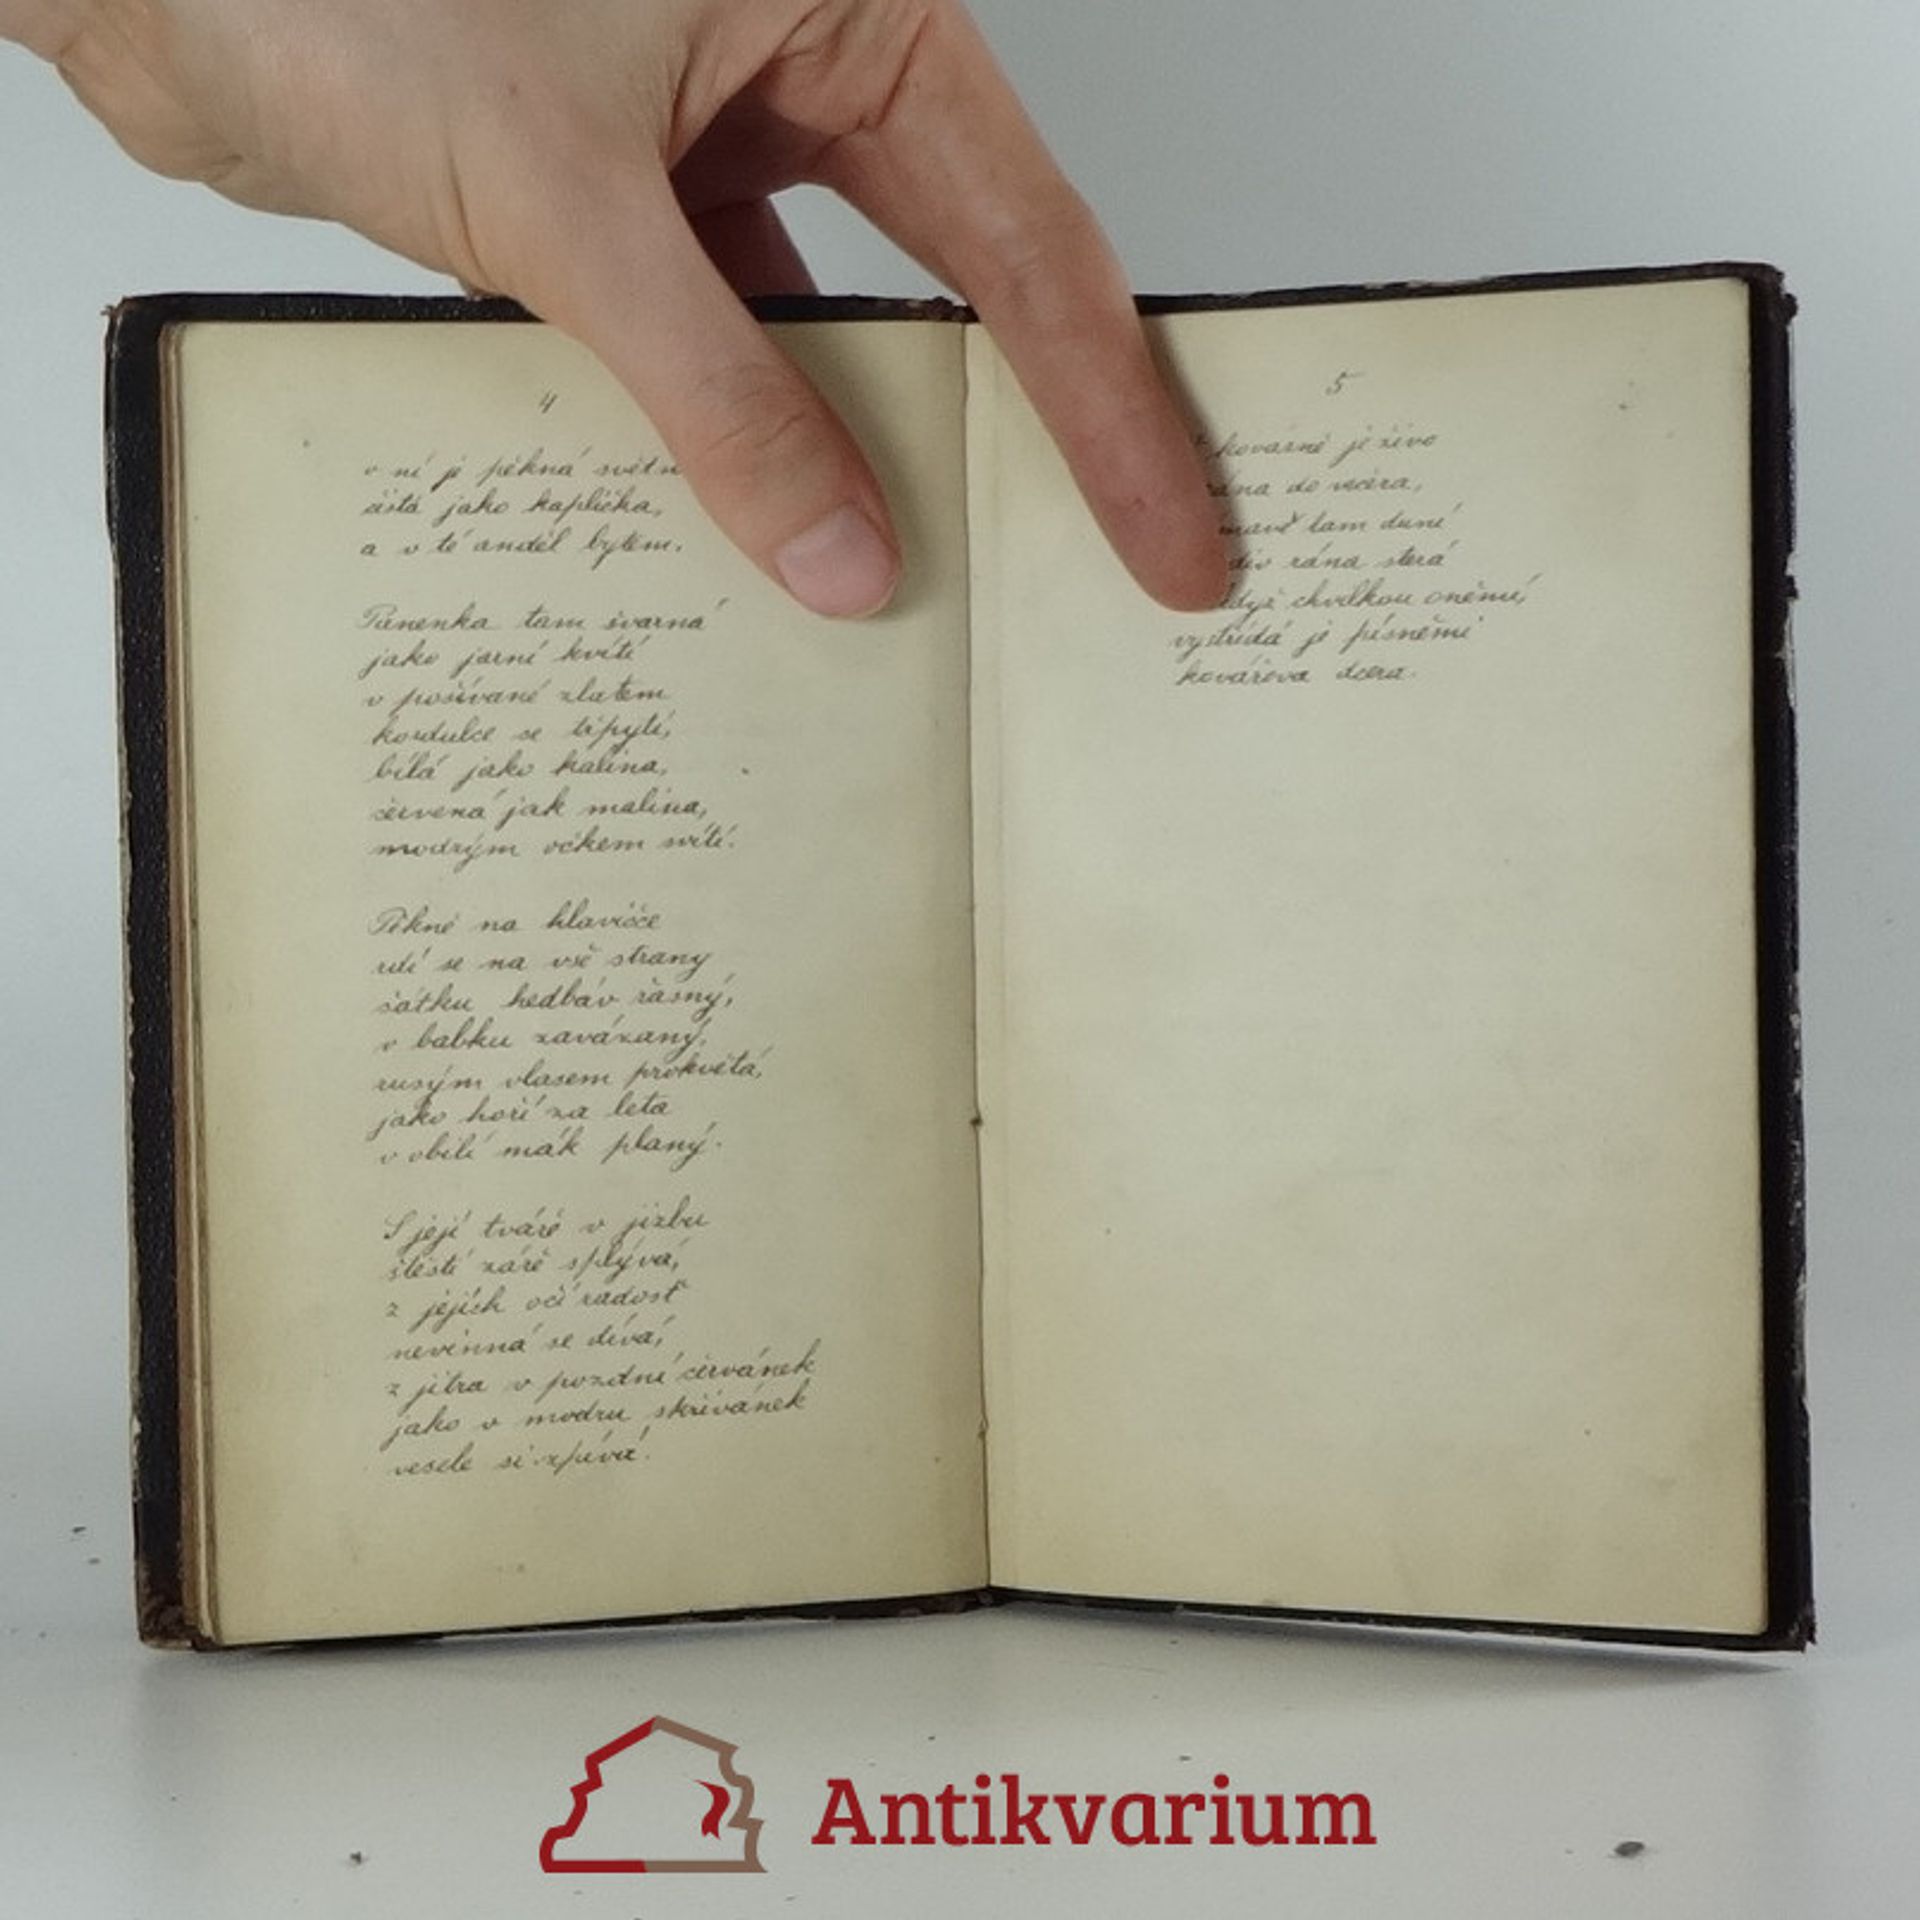 4
v ní je pěkná
čistá jako kaplička,
a v té anděl bytem.
Panenka tam švarná
jako jarní kvítí
v pošívané zlatem
kordulce se třpytí,
bílá jako kalina,
červená jak malina,
modrým očkem svítí.
Pěkně na hlavičce
rdí se na vše strany
šátku hedbáv řasný,
v babku zavázaný,
rusým vlasem prokvétá,
jako hoří za léta
v obilí mák planý.
S její tváře v jizbu
štěstí záře splývá,
z jejích očí radost
nevinná se dívá,
z jitra v pozdní červánek
jako v modru skřivánek
vesele si zpívá.
5
kovárně je živo
do večera,
tam duní
rána sterá
chvilkou oněmí,
vystřídá je písněmi
kovářova dcera.
Antikvarium